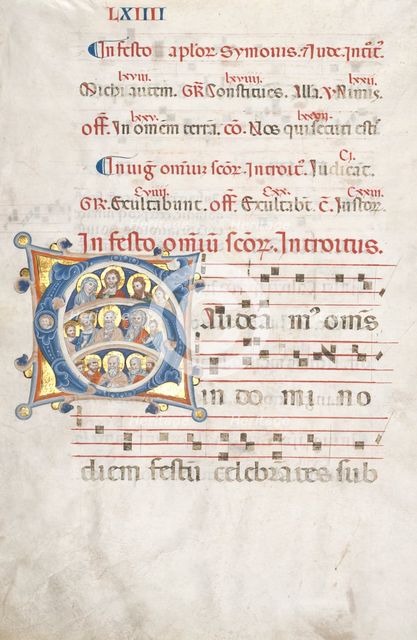 LXIIII
In festo aplor. Symonis. & Iude. Intit.
lxviii. lxviiii. lxxii.
Michi autem. GR. Constitues. Alla. V. Nimis.
lxxv. lxxxii.
off. In omem terra. co. Nos qui secuti esti.
C.i.
In uig omiu scor. Introit. Iudicat.
C.viii. C.xx. C.xxiii.
GR. Exultabunt. off. Exultabt. C. Iustor.
In festo omiu scor. Introitus.
Gaudeamus oms
in domino
diem festu celebrates sub
Heritage